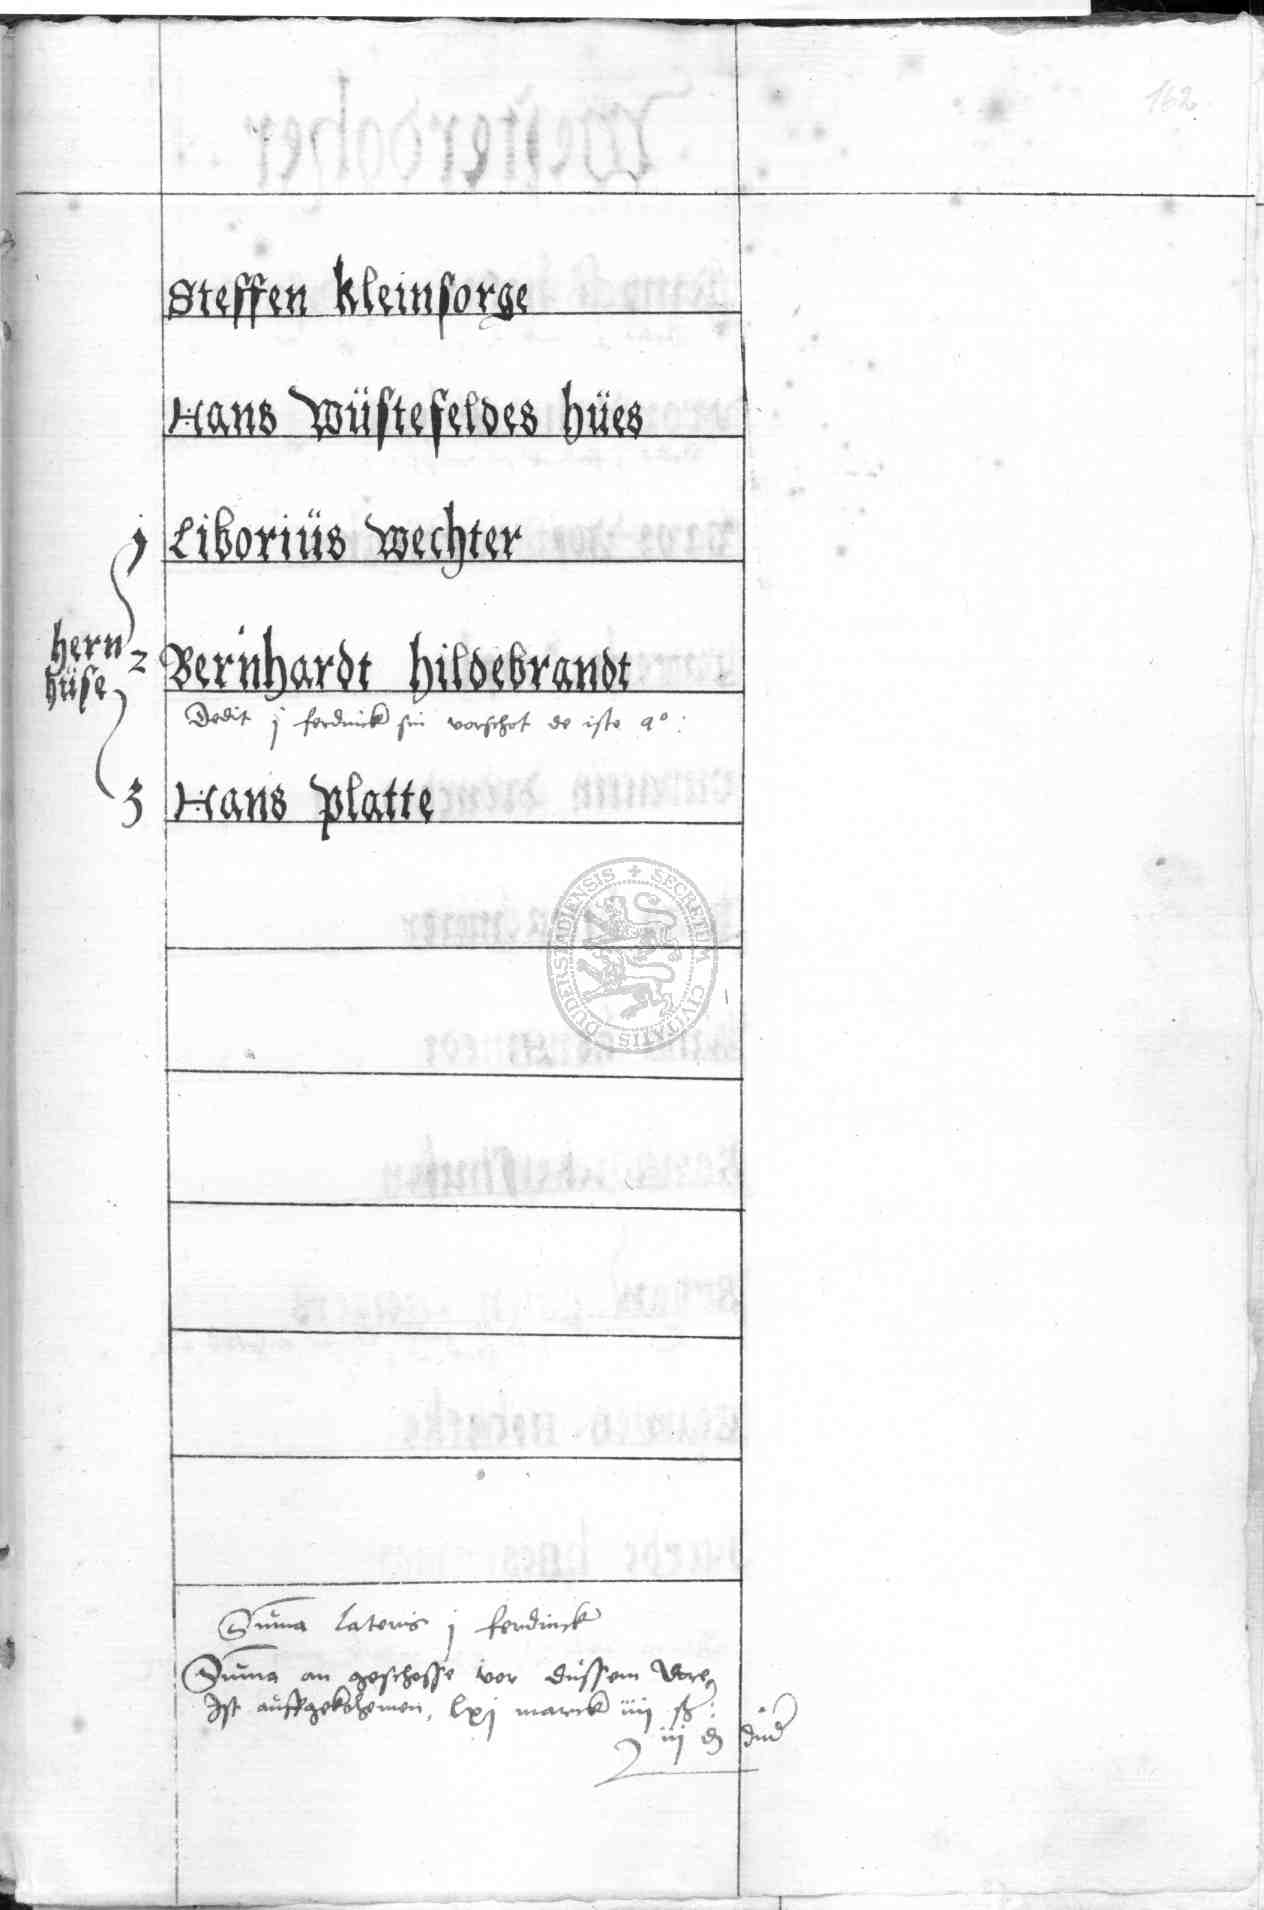 162
Steffen Kleinsorge
Hans Wüstefeldes hües
j Liboriüs Wechter
hern hüse
2 Bernhardt Hildebrandt
Dedit j ferdinck sin vorschot de isto aº:
3 Hans Platte
SECRETUM CIVITATIS DUDERSTADIENSIS
Suma lateris j ferdinck
Suma an geschosse vor düssem Dore
Ist auffgekohemen, lxj marck iiij ß:
iij d dud